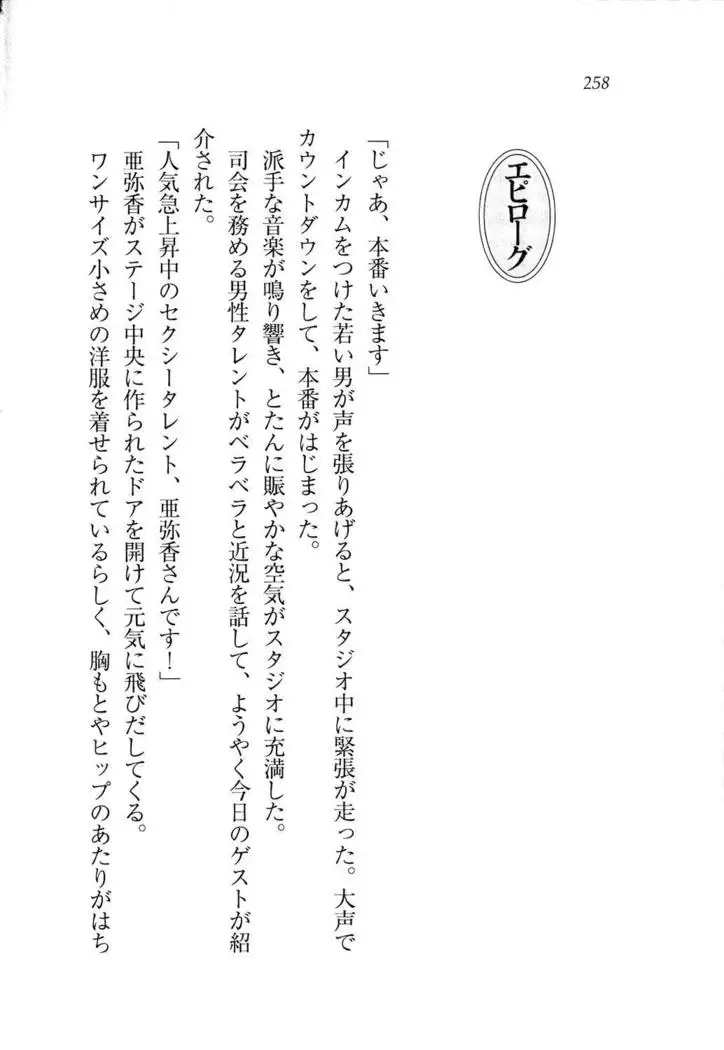 258
エピローグ
「じゃあ、本番いきます」
インカムをつけた若い男が声を張りあげると、スタジオ中に緊張が走った。大声で
カウントダウンをして、本番がはじまった。
派手な音楽が鳴り響き、とたんに賑やかな空気がスタジオに充満した。
司会を務める男性タレントがベラベラと近況を話して、ようやく今日のゲストが紹
介された。
「人気急上昇中のセクシータレント、亜弥香さんです!」
亜弥香がステージ中央に作られたドアを開けて元気に飛びだしてくる。
ワンサイズ小さめの洋服を着せられているらしく、胸もとやヒップのあたりがはち